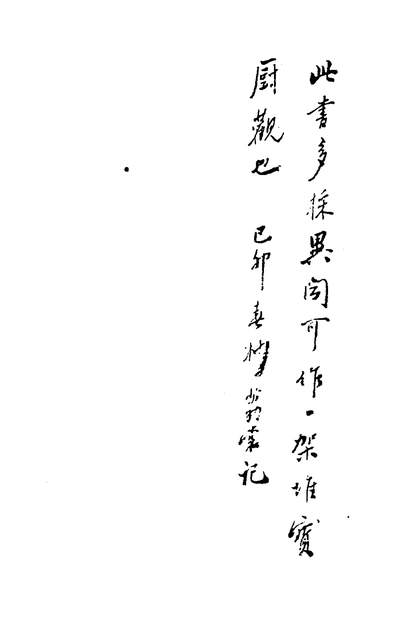 此書多採異聞可作一架堆寶
廚觀也 己卯春 記